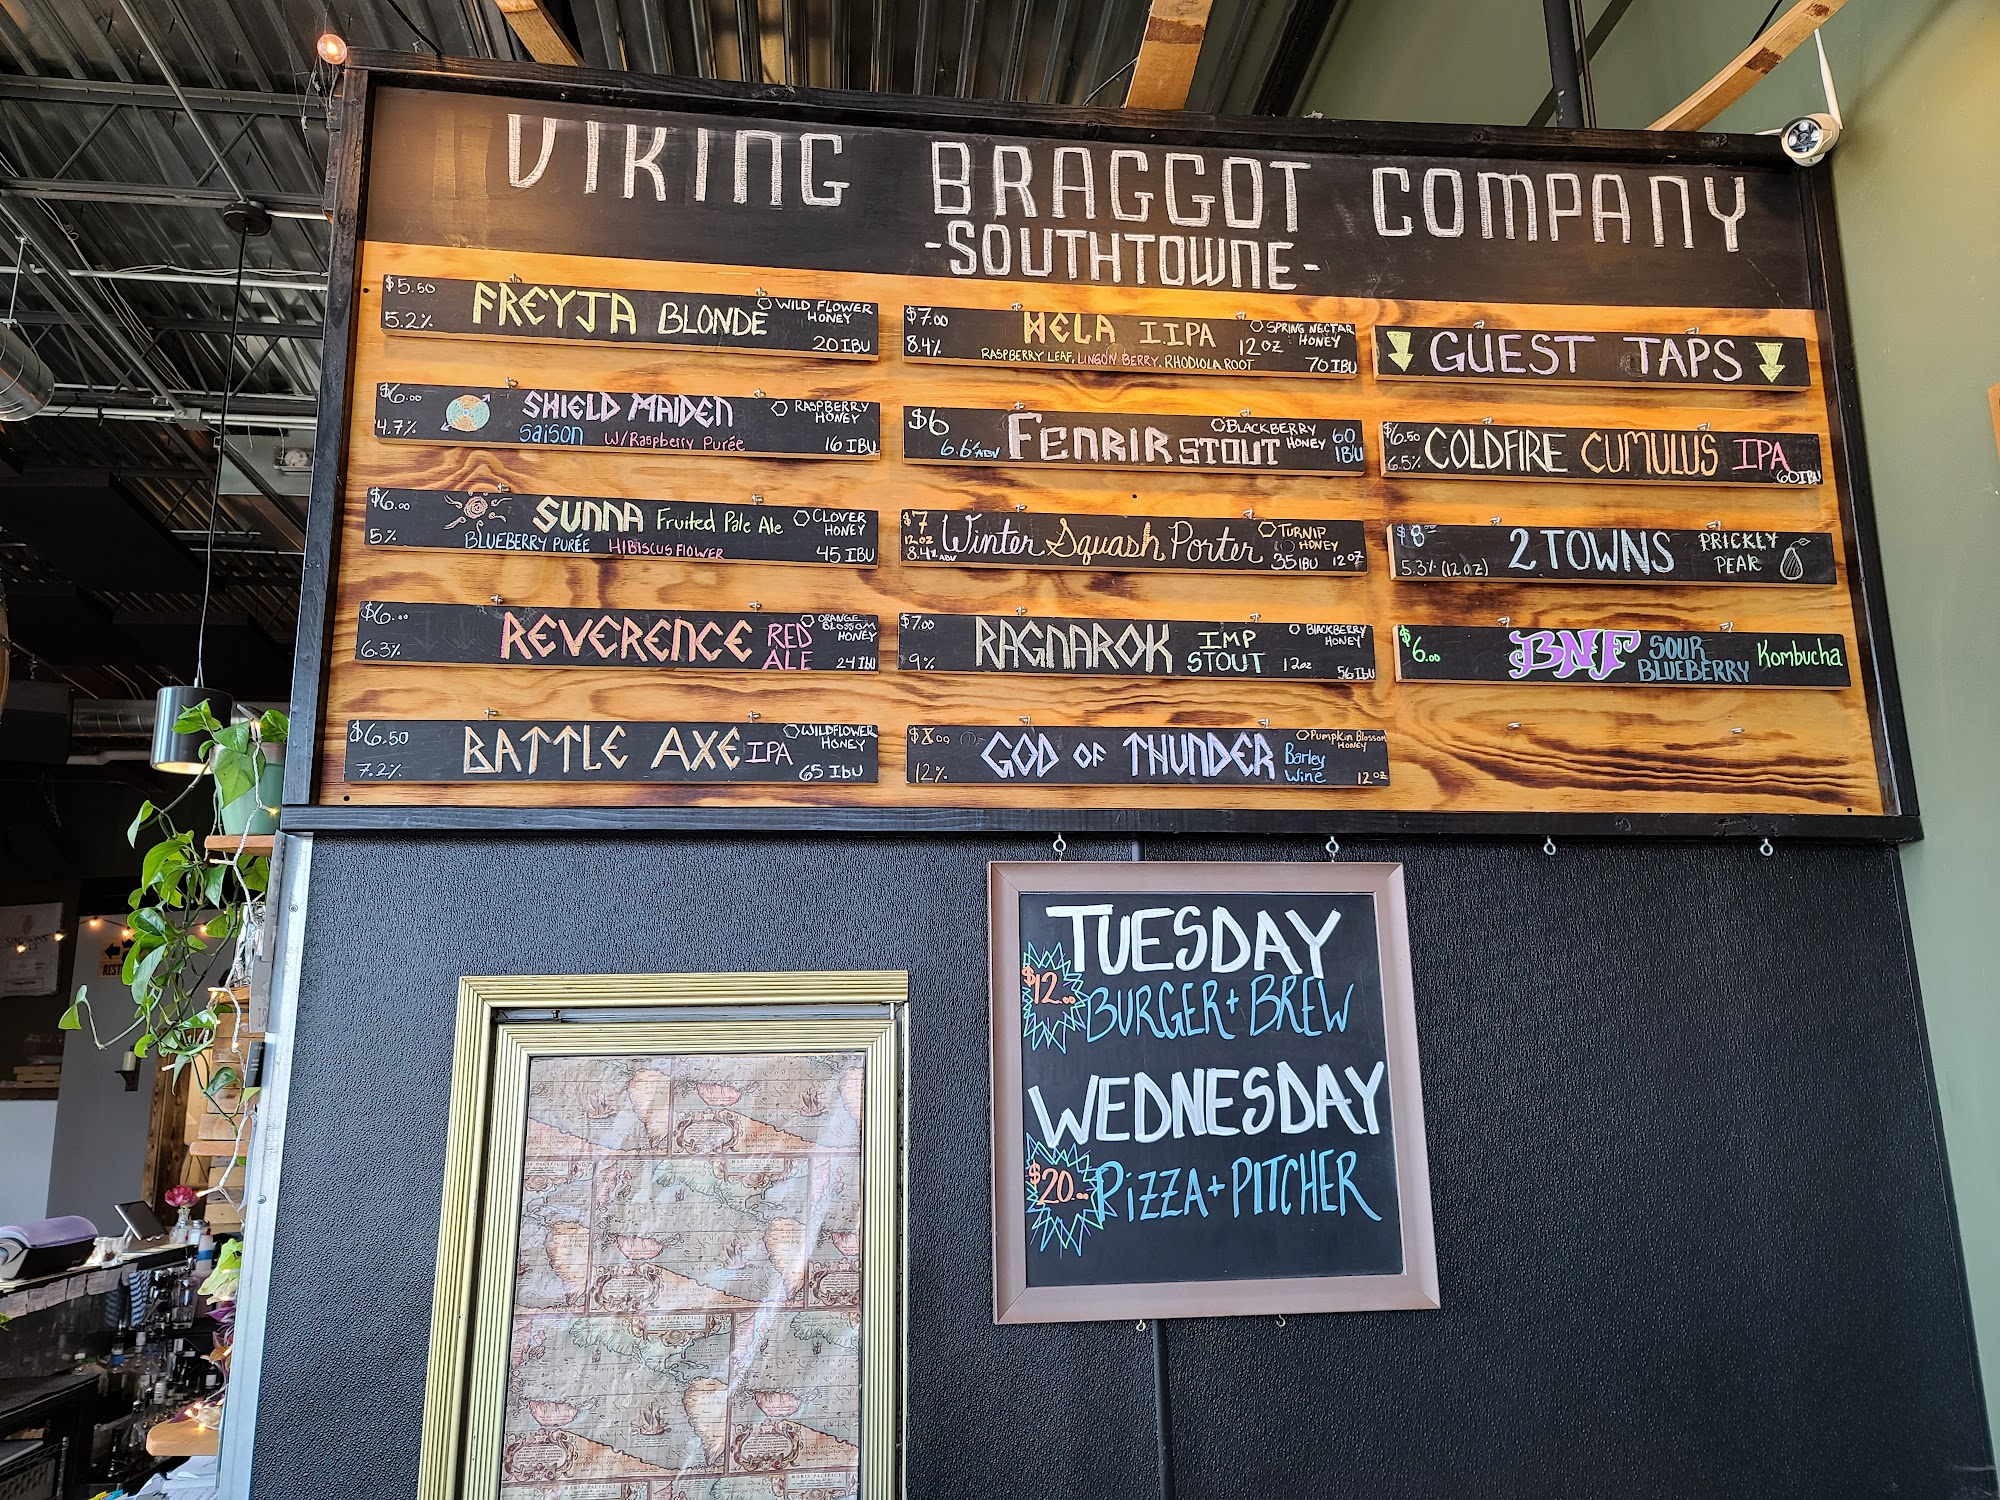 VIKING BRAGGOT COMPANY
-SOUTHTOWNE-
$5.50 FREYJA BLONDE WILD FLOWER
HONEY
5.2% 20 IBU
$6.00 SHIELD MAIDEN RASPBERRY
HONEY
4.7% Saison W/Raspberry Purée 16 IBU
$6.00 SUNNA Fruited Pale Ale CLOVER
HONEY
5% BLUEBERRY PURÉE HIBISCUS FLOWER 45 IBU
$6.00 REVERENCE RED
ALE
ORANGE
BLOSSOM
HONEY
6.3% 24 IbU
$6.50 BATTLE AXE IPA WILDFLOWER
HONEY
7.2% 65 IbU
$7.00 HELA I.IPA 12oz SPRING NECTAR
HONEY
8.4% RASPBERRY LEAF, LINGON BERRY, RHODIOLA ROOT 70 IBU
$6 FENRIR STOUT BLACKBERRY
HONEY
6.6% ABV 60
IBU
$7 Winter Squash Porter TURNIP
HONEY
12oz
8.4% ABV 35 IBU 12oz
$7.00 RAGNAROK IMP
STOUT
BlACKBERRY
HONEY
9% 12oz 56 IbU
$8.00 GOD OF THUNDER Barley
Wine
Pumpkin Blossom
HONEY
12% 12oz
GUEST TAPS
$6.50 COLDFIRE CUMULUS IPA
6.5% 60 IBU
$8 2 TOWNS PRICKLY
PEAR
5.3% (12oz)
$6.00 BNF SOUR
BLUEBERRY
Kombucha
TUESDAY
$12.00 BURGER + BREW
WEDNESDAY
$20.00 PiZZA + PITCHER